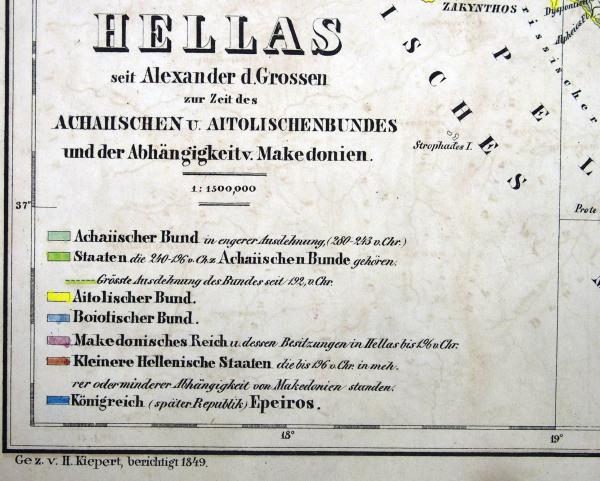 ZAKYNTHOS
Dyspontion
Alpheios Fl.
HELLAS
seit Alexander d. Grossen
zur Zeit des
ACHAIISCHEN U. AITOLISCHENBUNDES
und der Abhängigkeit v. Makedonien.
1:1500,000
ISCHES
PEL
Strophades I.
37°
Prote
Achaiischer Bund in engerer Ausdehnung, (280-243 v. Chr.)
Staaten die 240-196 v. Ch. z. Achaiischen Bunde gehören.
Grösste Ausdehnung des Bundes seit 192, v. Chr.
Aitolischer Bund.
Boiotischer Bund.
Makedonisches Reich u. dessen Besitzungen in Hellas bis 196 v. Chr.
Kleinere Hellenische Staaten die bis 196 v. Chr. in meh-
rer oder minderer Abhängigkeit von Makedonien standen.
Königreich (später Republik) Epeiros.
18° 19°
Gez. v. H. Kiepert, berichtigt 1849.